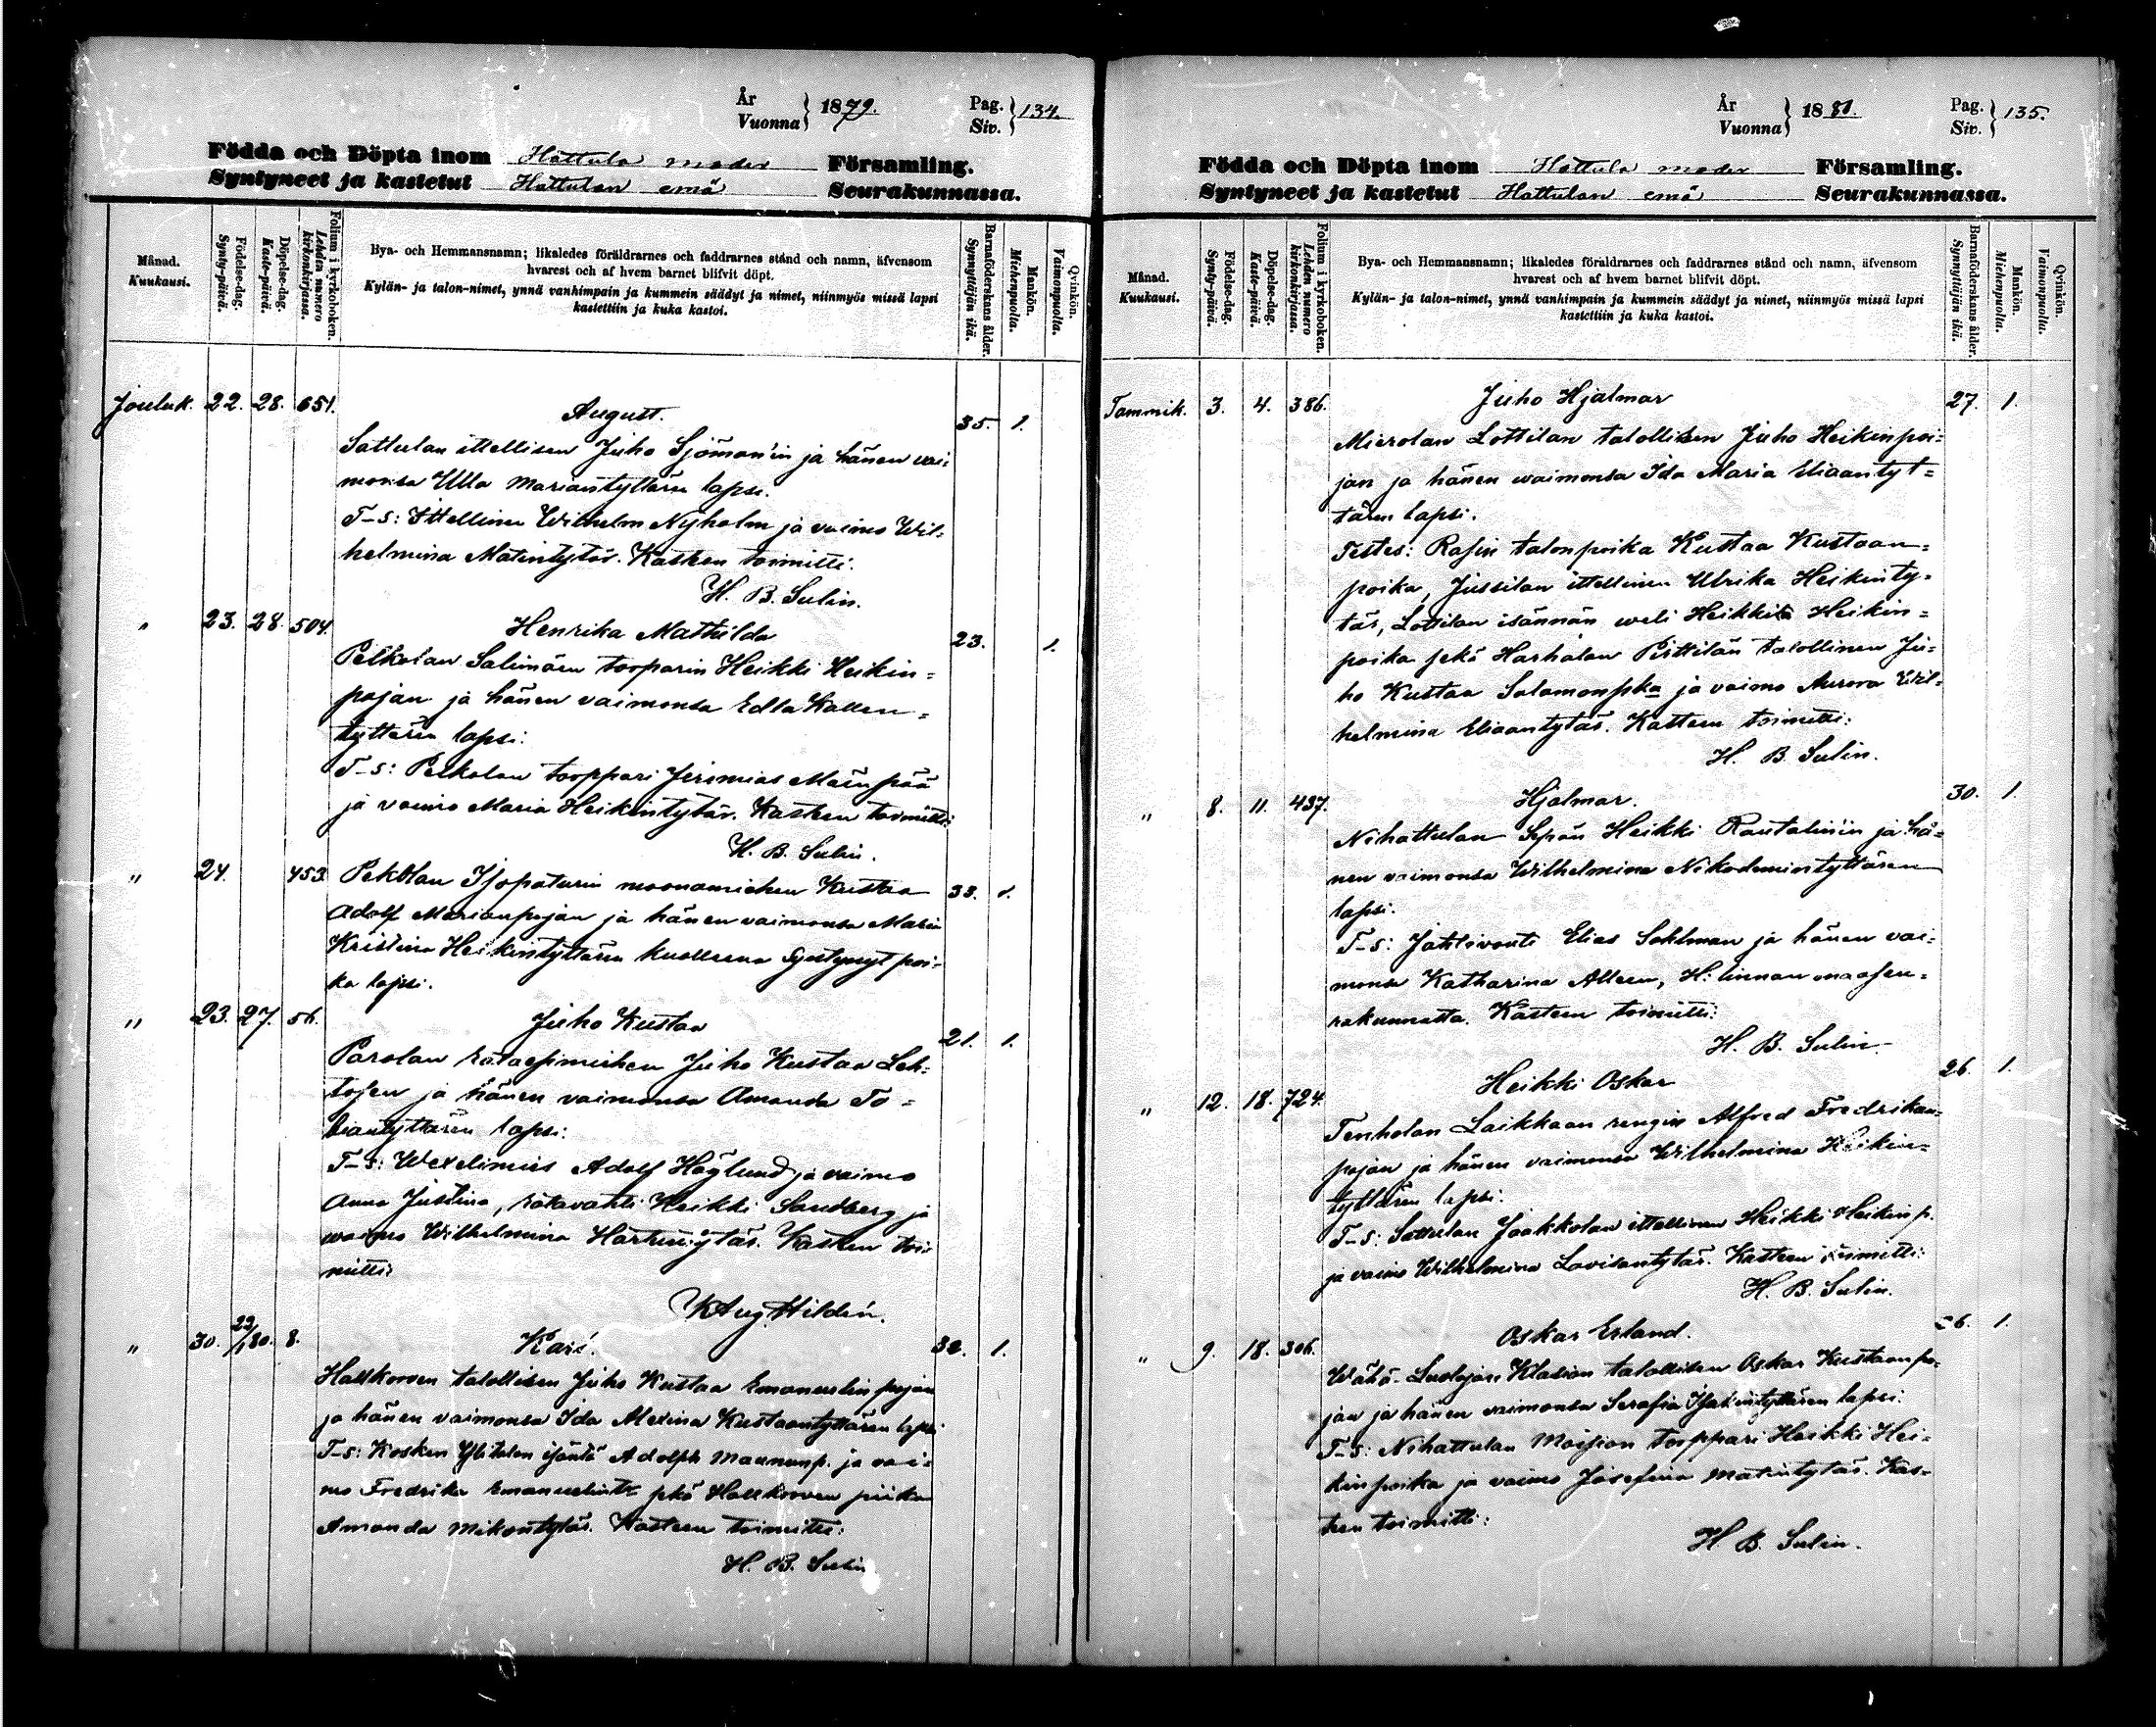 År
Vuonna } 1879.
Pag.
Siv. } 134.
Födda och Döpta inom Hattula moder Församling.
Syntyneet ja kastetut Hattulan emä Seurakunnassa.
Månad.
Kuukausi.
Födelse-dag.
Synty-päivä.
Döpelse-dag.
Kaste-päivä.
Folium i kyrkoboken.
Lehden numero kirkonkirjassa.
Bya- och Hemmansnamn; likaledes föräldrarnes och faddrarnes stånd och namn, äfvensom
hvarest och af hvem barnet blifvit döpt.
Kylän- ja talon-nimet, ynnä vanhimpain ja kummein säädyt ja nimet, niinmyös missä lapsi
kastettiin ja kuka kastoi.
Barnaföderskans ålder.
Synnyttäjän ikä.
Mankön.
Miehenpuolta.
Qvinkön.
Vaimonpuolta.
Jouluk. 22. 28. 651. August. 35. 1.
Sattulan ittellisen Juho Sjöman'in ja hänen vai-
monsa Ulla Mariantyttären lapsi.
T-s: Ittellinen Wilhelm Nyholm ja vaimo Wil-
helmina Matintytär. Kasteen toimitti:
H. B. Sulin.
" 23. 28. 504. Henrika Mathilda 23. 1.
Pelkolan Salimäen torparin Heikki Heikin-
pojan ja hänen vaimonsa Edla Kallen-
tyttären lapsi:
T-s: Pelkolan torppari Jeremias Mäenpää
ja vaimo Maria Heikintytär. Kasteen toimitti:
H. B. Sulin.
" 24. 453. Pekolan Isopaturin muonamiehen Kustaa 33. 1.
Adolf Marianpojan ja hänen vaimonsa Maria
Kristina Heikintyttären kuolleena syntynyt poi-
ka lapsi.
" 23. 27. 56. Juho Kustaa 21. 1.
Parolan rataesimiehen Juho Kustaa Leh-
tosen ja hänen vaimonsa Amanda To-
biantyttären lapsi:
T-s: Wexelimies Adolf Höglund ja vaimo
Anna Justina, ratavahti Heikki Sandberg ja
waimo Wilhelmina Kasteen toi-
mitti:
K Aug. Hildén.
" 30. 22/1 80. 8. Karl. 32. 1.
Hallkorven talollisen Juho Kustaa Emanuelin pojan
ja hänen vaimonsa Ida Alexina Kustaantyttären lapsi
T-s: Kosken Ylitalon isäntä Adolph Maununp. ja vai-
mo Fredrika Emanuelintr sekä Hallkorven piika
Amanda Mikontytär. Kasteen toimitti:
H. B. Sulin
År
Vuonna } 1880.
Pag.
Siv. } 135.
Födda och Döpta inom Hattula moder Församling.
Syntyneet ja kastetut Hattulan emä Seurakunnassa.
Månad.
Kuukausi.
Födelse-dag.
Synty-päivä.
Döpelse-dag.
Kaste-päivä.
Folium i kyrkoboken.
Lehden numero kirkonkirjassa.
Bya- och Hemmansnamn; likaledes föräldrarnes och faddrarnes stånd och namn, äfvensom
hvarest och af hvem barnet blifvit döpt.
Kylän- ja talon-nimet, ynnä vanhimpain ja kummein säädyt ja nimet, niinmyös missä lapsi
kastettiin ja kuka kastoi.
Barnaföderskans ålder.
Synnyttäjän ikä.
Mankön.
Miehenpuolta.
Qvinkön.
Vaimonpuolta.
Tammik. 3. 4. 386. Juho Hjalmar 27. 1.
Mierolan Lottilan talollisen Juho Heikinpoi-
jan ja hänen waimonsa Ida Maria Eliaantyt-
tären lapsi.
Testes: Rasin talonpoika Kustaa Kustaan-
poika, Jussilan ittellinen Ulrika Heikinty-
tär, Lottilan isännän weli Heikki Heikin-
poika sekä Harhalan Pirttilän talollinen Ju-
ho Kustaa Salamonpka ja vaimo Aurora Wil-
helmina Eliaantytär. Kasteen toimitti:
H. B. Sulin.
" 8. 11. 437. Hjalmar. 30. 1.
Nihattulan Sepän Heikki Rautalin'in ja hä-
nen vaimonsa Wilhelmina Nikodemintyttären
lapsi.
T-s: Jahtivouti Elias Sahlman ja hänen vai-
monsa Katharina Alleen, H:linnan maaseu-
rakunnasta. Kasteen toimitti:
H. B. Sulin.
" 12. 18. 724. Heikki Oskar 26. 1.
Tenholan Laikkaan rengin Alfred Fredrikan-
pojan ja hänen vaimonsa Wilhelmina Heikin-
tyttären lapsi.
T-s: Sattulan Jaakkolan ittellinen Heikki Heikinp.
ja vaimo Wilhelmina Lovisantytär. Kasteen toimitti:
H. B. Sulin.
" 9. 18. 306. Oskar Erland. 26. 1.
Wähä-Luolajan Klasion talollisen Oskar Kustaanpo-
jan ja hänen vaimonsa Serafia Isakintyttären lapsi:
T-s: Nihattulan Moision torppari Heikki Hei-
kinpoika ja vaimo Josefina Matintytär. Kas-
teen toimitti:
H. B. Sulin.